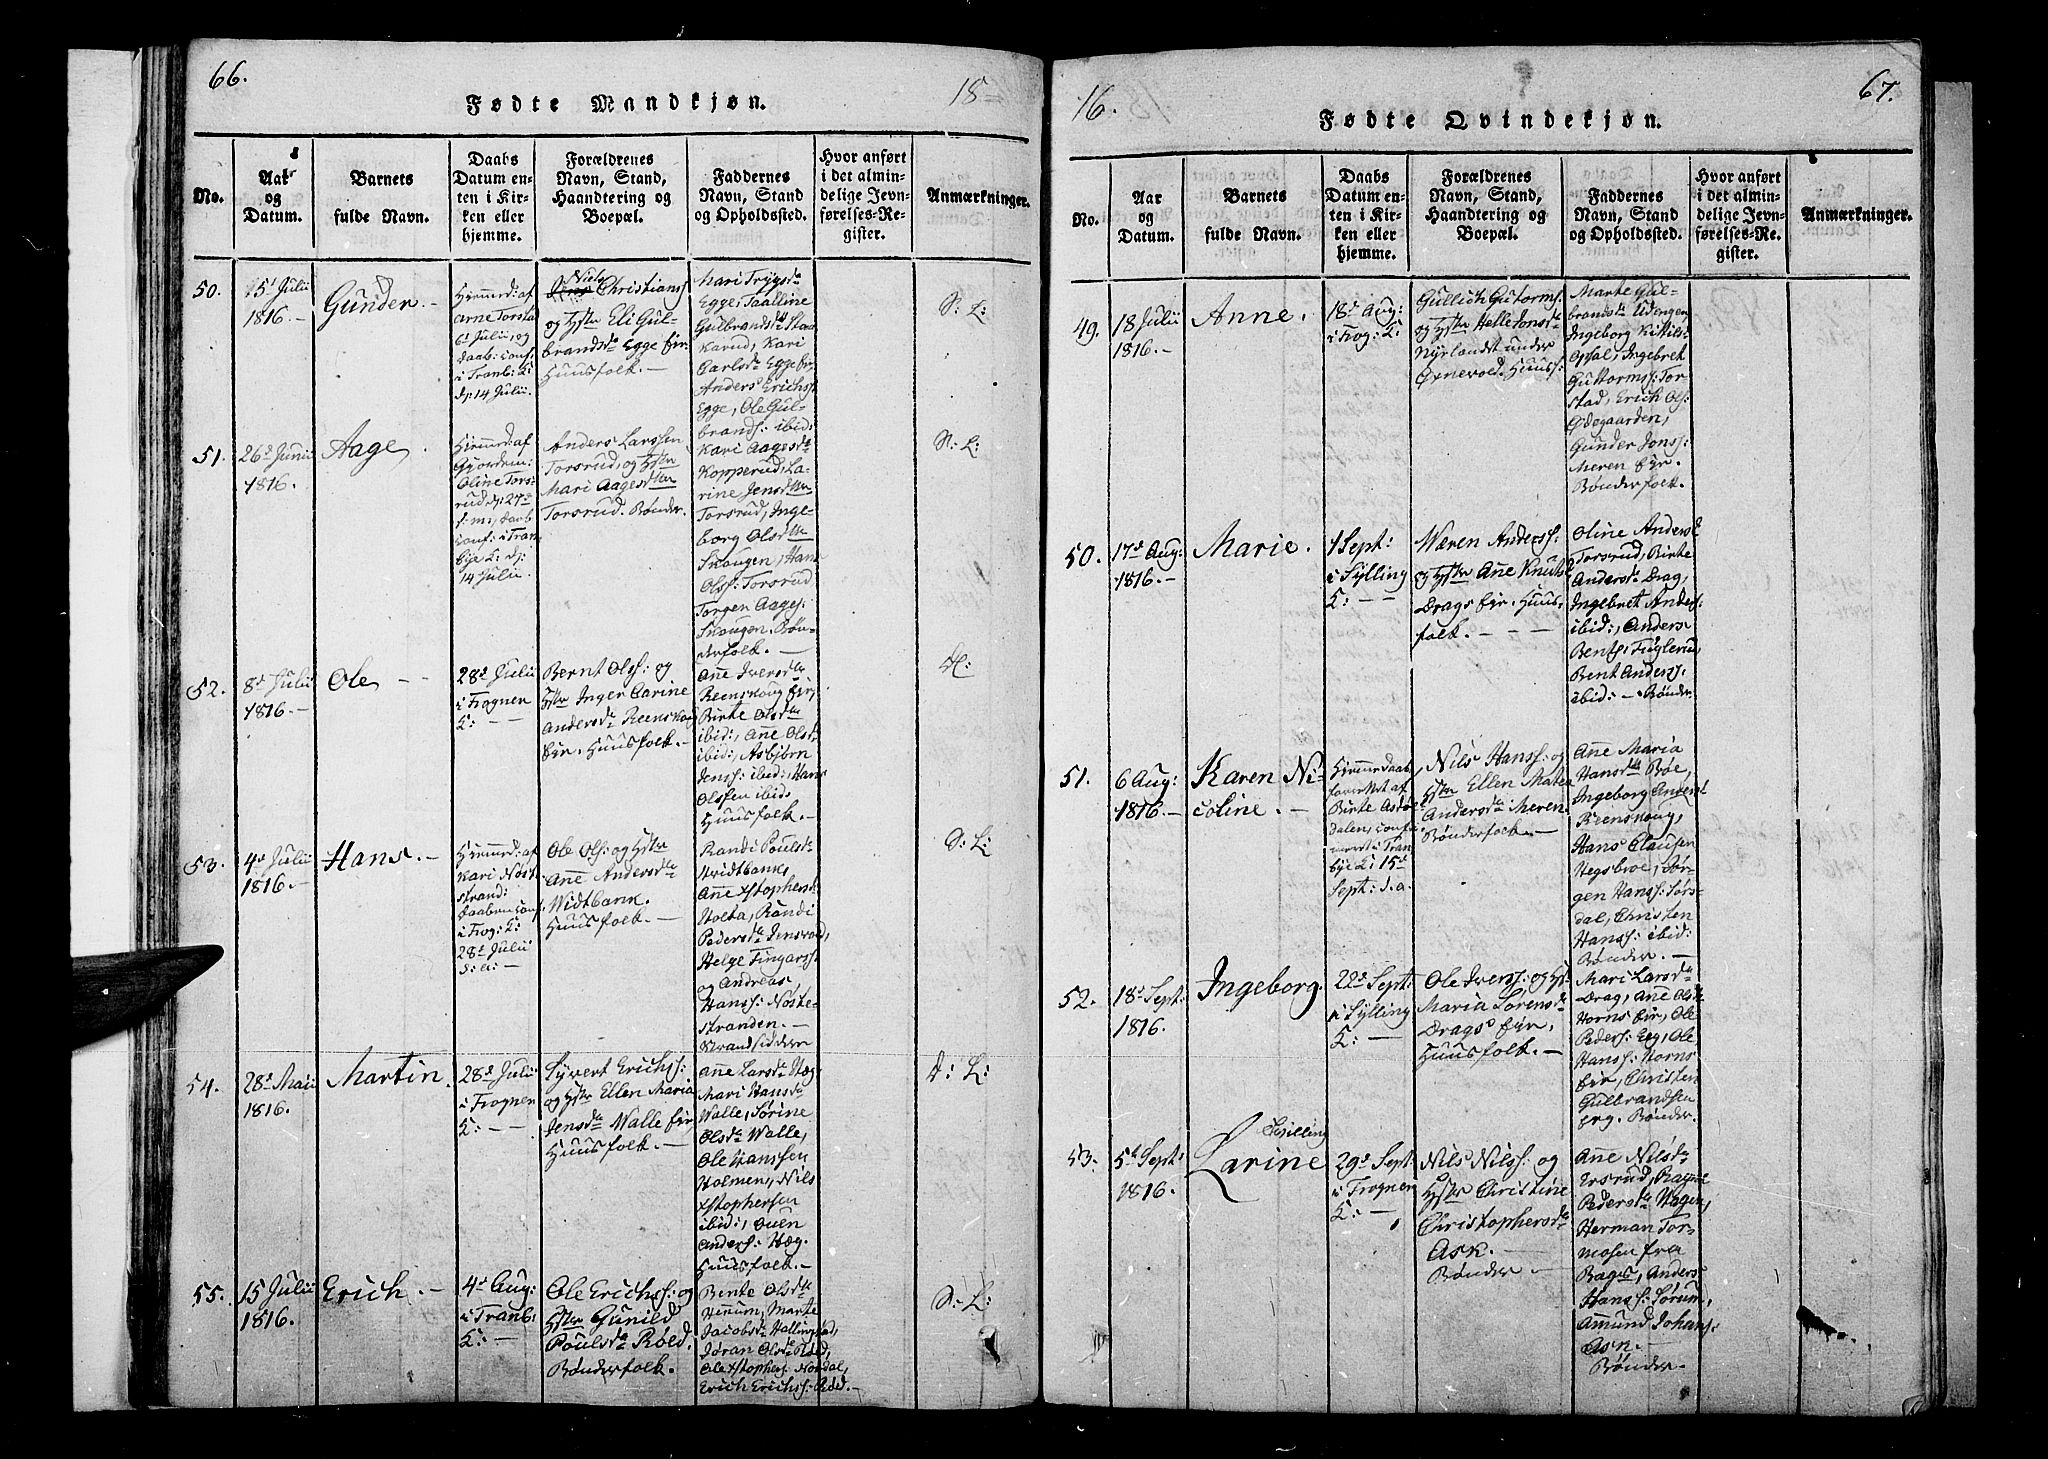 66.
Fødte Mandkjøn.
18
No.
Aar
og
Datum.
Barnets
fulde Navn.
Daabs
Datum en-
ten i Kir-
ken eller
hjemme.
Forældrenes
Navn, Stand,
Haandtering og
Boepæl.
Faddernes
Navn, Stand
og Opholdssted.
Hvor anført
i det almin-
delige Jevn-
førelses-Re-
gister.
Anmærkninger.
50.
15 Julii
1816.
Gunder.
Hjemmed: af
Arne Torsta
6 Julii, og
Daab: conf:
i Tranb: K:
d: 14 Julii.
Niels
Christians
og Hstr Eli Gul-
brandsdr Egge eir
Huusfolk.
Mari Trygsdr
Egge, Taalline
Gulbrandsdr Stok
Karud, Kari
Carlsdr Egge eir
Anders Erichs:
Egge, Ole Gul-
brands: ibid:
S: L:
51.
26d Junii
1816.
Aage
Hjemmed: af
Gjordem:
Oline Tors-
rud, d: 27d
s: m:, Daab
conf: i Tran
bye K: d:
14 Julii.
Anders Larssen
Torsrud, og Hstr
Mari Aagesdttr
Torsrud. Bønder.
Kari Aagesdr
Kopperud, La-
rine Jensdttr
Torsrud, Inge-
borg Olsdttr
Skougen, Hans
Olss: Torsrud
Torgen Aages:
Skougen. Bøn-
derfolk.
S: L:
52.
8d Julii
1816.
Ole
28d Julii
i Frognen
K:
Bernt Olss: og
Hstr Inger Carine
Andersdr Reenskoug
eir. Huusfolk.
Ane Iversdr
Reenskoug eir,
Birte Olsdr
ibid:, Ane Olsdr
ibid:, Asbjørn
Jenss: ibid:, Hans
Olsen ibid:
Huusfolk.
53.
4d Julii
1816.
Hans.
Hjemmed: af
Kari Nøst-
strand:
Daaben conf.
i Frog: K:
28d Julii
s: a:
Ole Ols: og Hstr
Ane Andersdr
Widtbank.
Huusfolk.
Randi Poulsdr
Hvidtbank
Anne Xstophersdr
Holta, Randi
Pedersdr Jensvold,
Helge Fingarss:
og Andreas
Hanss: Nøste-
stranden.
Strandsiddere
S: L:
54.
28d Maii
1816.
Martin.
28d Julii
i Frognen
K:
Syvert Erichss:
og Hstr Ellen Maria
Jensdr Walle eir,
Huusfolk.
Ane Larsdr Hæg
Mari Hansdr
Walle, Sørine
Olsdr Walle,
Ole Hanssen
Holmen, Nils
Xstophersen
ibid:, Ouen
Anders: Hæg.
Huusfolk.
D: L:
55.
15 Julii
1816.
Erich.
4d Aug:
i Tranb:
K:
Ole Erichss: og
Hstr Gunild
Poulsdr Røed.
Bønderfolk.
Bente Olsdr
Hennum, Marte
Jacobsdr Hallingstad,
Jøran Olsdr Røed,
Ole Xstophers: Nordal,
Erich Erichss: Røed.
S: L:
16.
67.
Fødte Qvindekjøn.
No.
Aar
og
Datum.
Barnets
fulde Navn.
Daabs
Datum en-
ten i Kir-
ken eller
hjemme.
Forældrenes
Navn, Stand,
Haandtering og
Boepæl.
Faddernes
Navn, Stand
og Opholdssted.
Hvor anført
i det almin-
delige Jevn-
førelses-Re-
gister.
Anmærkninger.
49.
18 Julii
1816.
Anne.
18d Aug:
i Frog: K:
Gullich Gutorms:
og Hstr Helle Jonsdr
Nyrlandet under
Oxnevold. Huusf:
Marte Gul-
brandsdr Udengen,
Ingeborg Kittils-
Opsal, Ingebret
Guttorms: Tor-
stad, Erich Ols:
Ødegaarden,
Gunder Jonss:
Meren eir.
Bønderfolk.
50.
17d Aug:
1816.
Marie.
1 Sept:
i Sylling
K:
Wæren Anderss:
og Hstr Ane Knuts
Drags eir. Huus-
folk.
Oline Andersd
Torsrud, Birte
Andersdr Drag,
Ingebret Anders:
ibid:, Anders
Bents: Fuglerud
Bent Anders:
ibid: Bønder.
51.
6 Aug:
1816.
Karen Ni-
coline.
Hjemmedaab
forrettet af
Birte Astøe
Dalen, conf-
rmeret i Tran
bye K: 15d
Sept: s. a.
Nils Hanss: og
Hstr Ellen Mate
Andersdr Meren.
Bønderfolk.
Ane Maria
Hansdr Bøe,
Ingeborg Andersd
Reenskoug,
Hans Clausen
Hegsbroe, Jør-
gen Hanss: Sørs-
dal, Christen
Hanss: ibid:
Bønder.
52.
18d Sept:
1816.
Ingeborg.
22d Sept:
i Sylling
K:
Ole Iverss: og Hst
Maria Lorensdr
Drags eir,
Huusfolk.
Mari Larsdr
Drag, Ane Olsdr
Horns eir, Ole
Pederss: Eeg, Ole
Hanss: Horns
eir, Christen
Gulbrandsen
Bønder.
53.
5d Sept:
1816.
Schilling
Larine
29d Sept:
i Frognen
K:
Nils Nilss: og
Hstr Christine
Christophersdr
Ask.
Bønder
Ane Nilsdr
Ersrud, Ragne
Pedersdr Hagen,
Herman Tor-
mosen fra
Rages, Anders
Hanss: Sørum,
Amund Johans:
Ask.
Bønder.